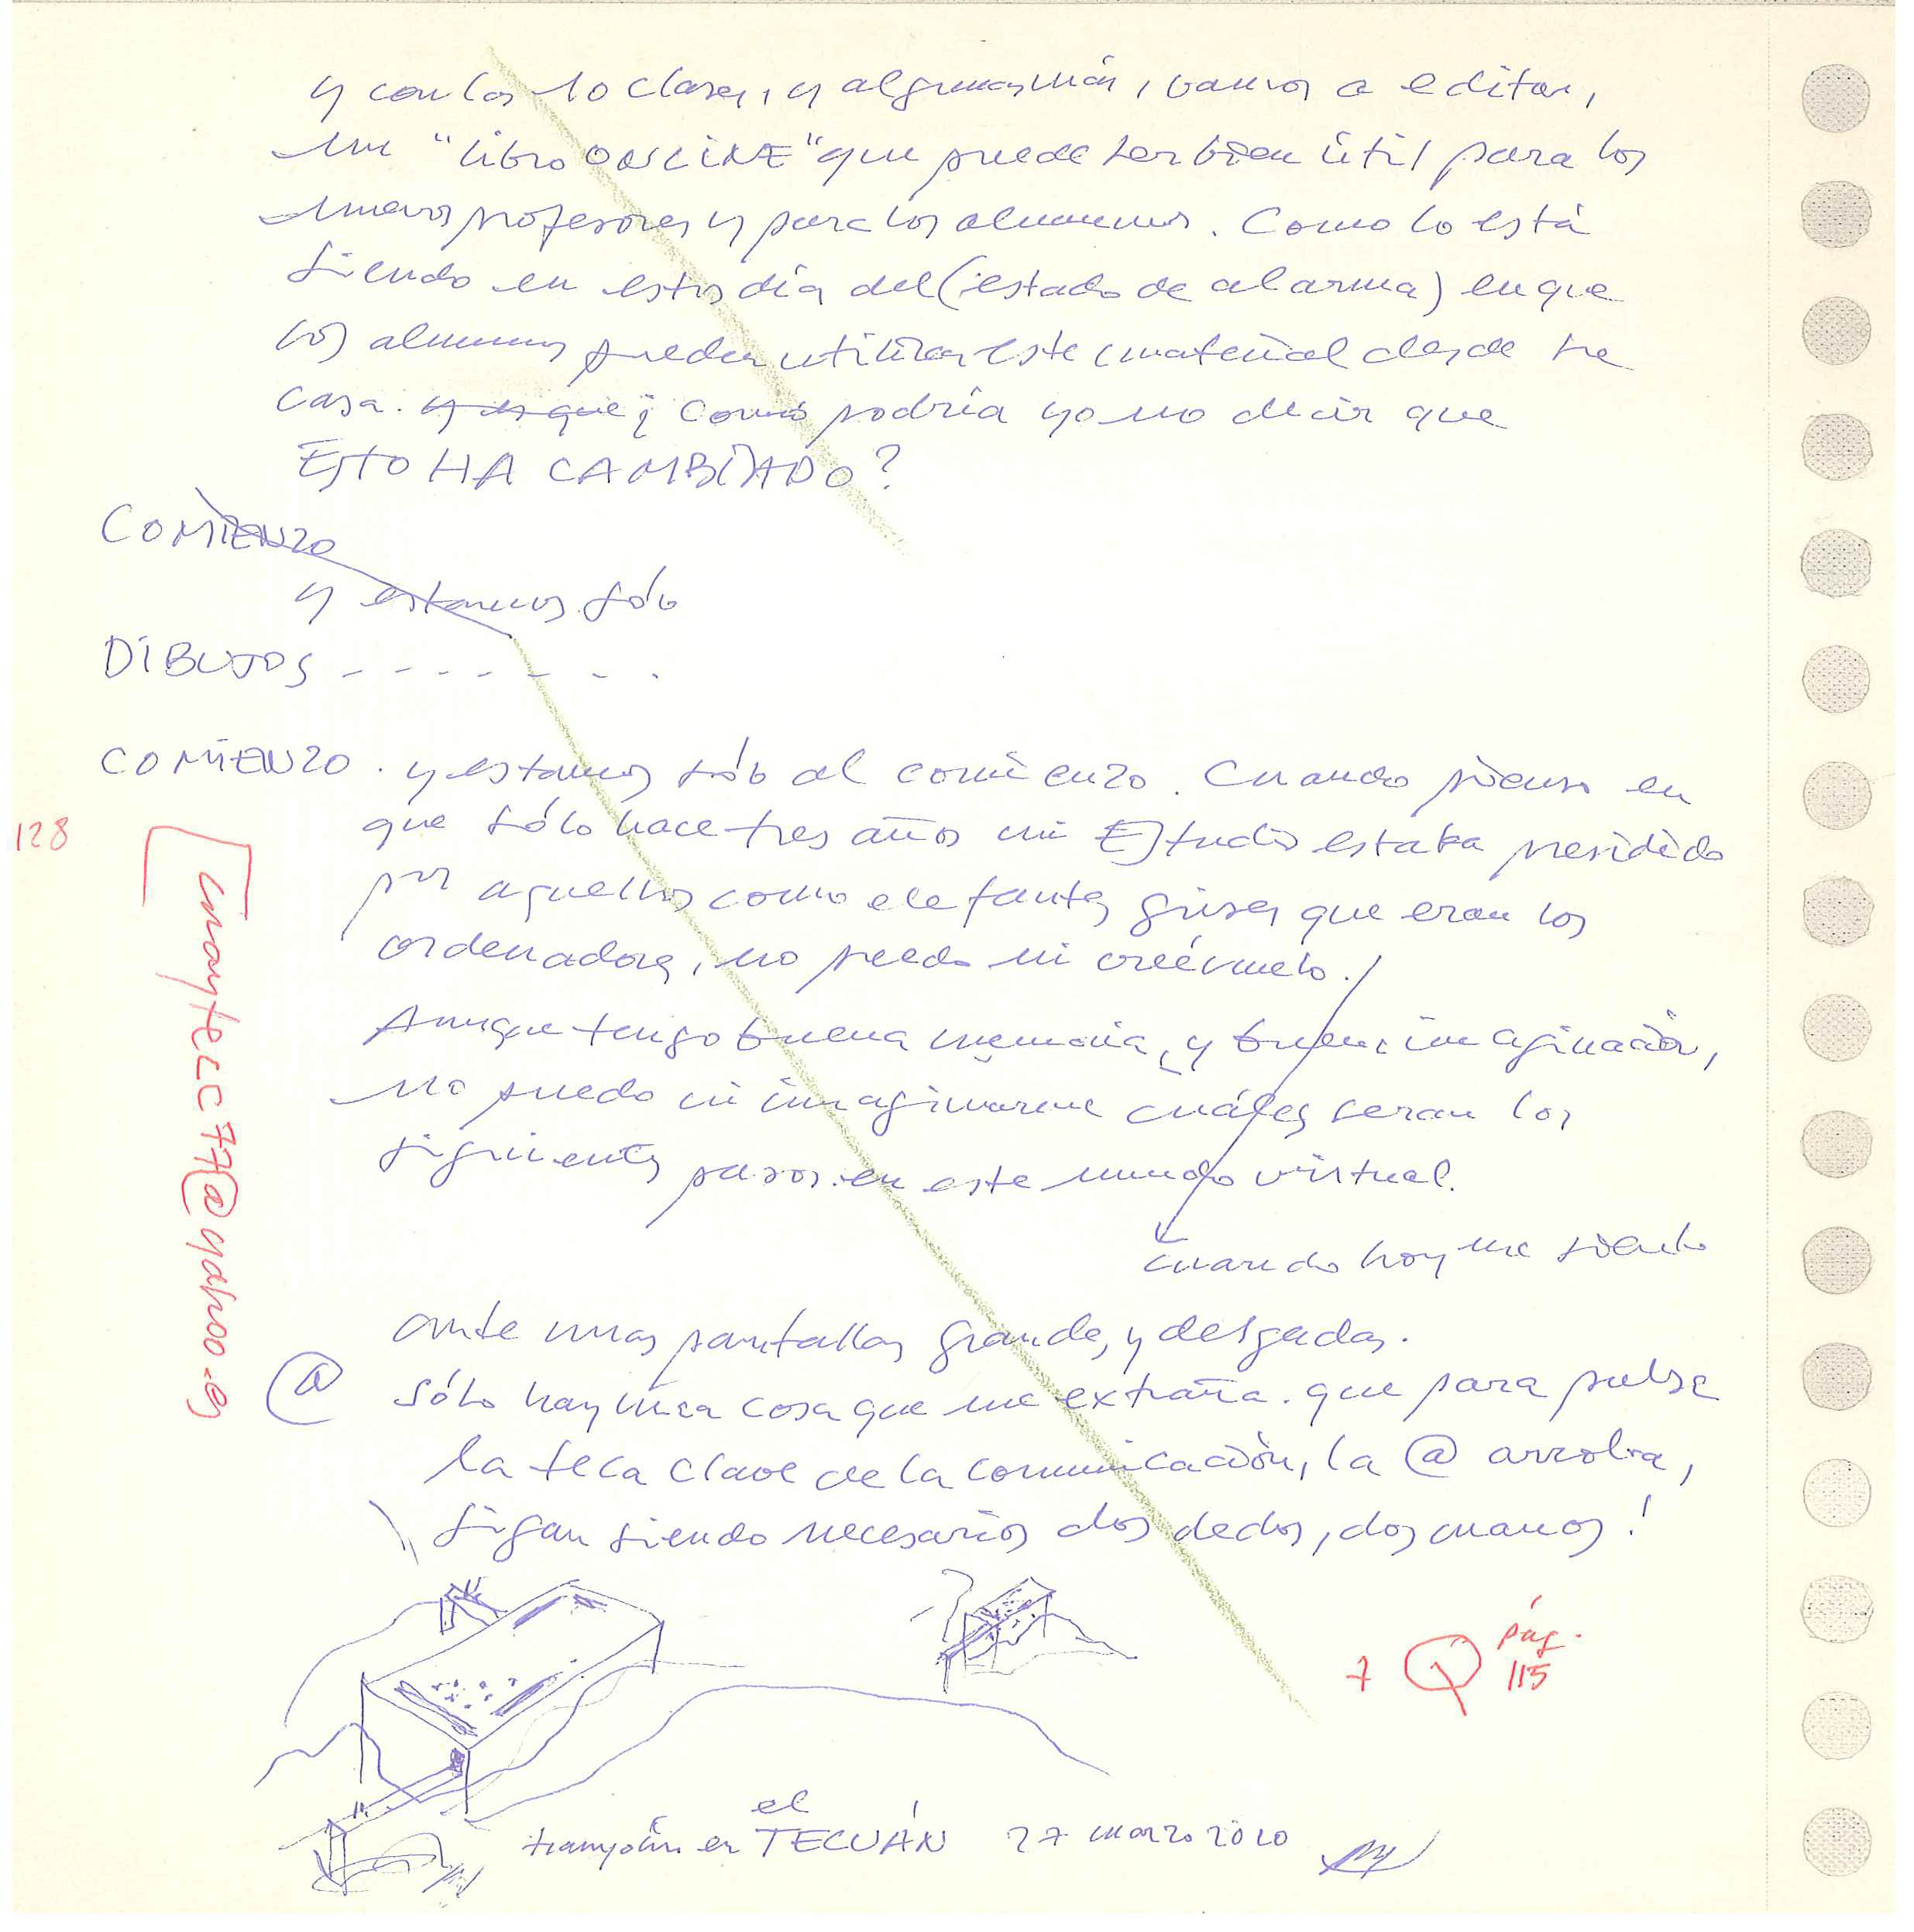 y con las 10 clases, y algunas más, vamos a editar,
un "libro ONLINE" que puede ser bien útil para los
nuevos profesores y para los alumnos. Como lo está
siendo en estos día del (estado de alarma) en que
los alumnos pueden utilizar este material desde su
casa. y es que ¿ Como podría yo no decir que
ESTO HA CAMBIADO?
COMIENZO
y estamos sólo
DIBUJOS - - - - - - .
COMIENZO . y estamos sólo al comienzo. Cuando pienso en
que sólo hace tres años mi Estudio estaba presidido
por aquellos como elefantes grises que eran los
ordenadores, no puedo ni creérmelo.
Aunque tengo buena memoria, y buena imaginación,
no puedo ni imaginarme cuáles seran los
siguientes pasos en este mundo virtual.
cuando hoy me siento
ante unas pantallas grandes, y delgadas.
@ Sólo hay una cosa que me extraña. que para pulsar
la tecla clave de la comunicación, la @ arroba,
sigan siendo necesarios dos dedos, dos manos!
128
@yahoo.es
7 Q pág. 115
trampolín en el TECUÁN 27 marzo 2020